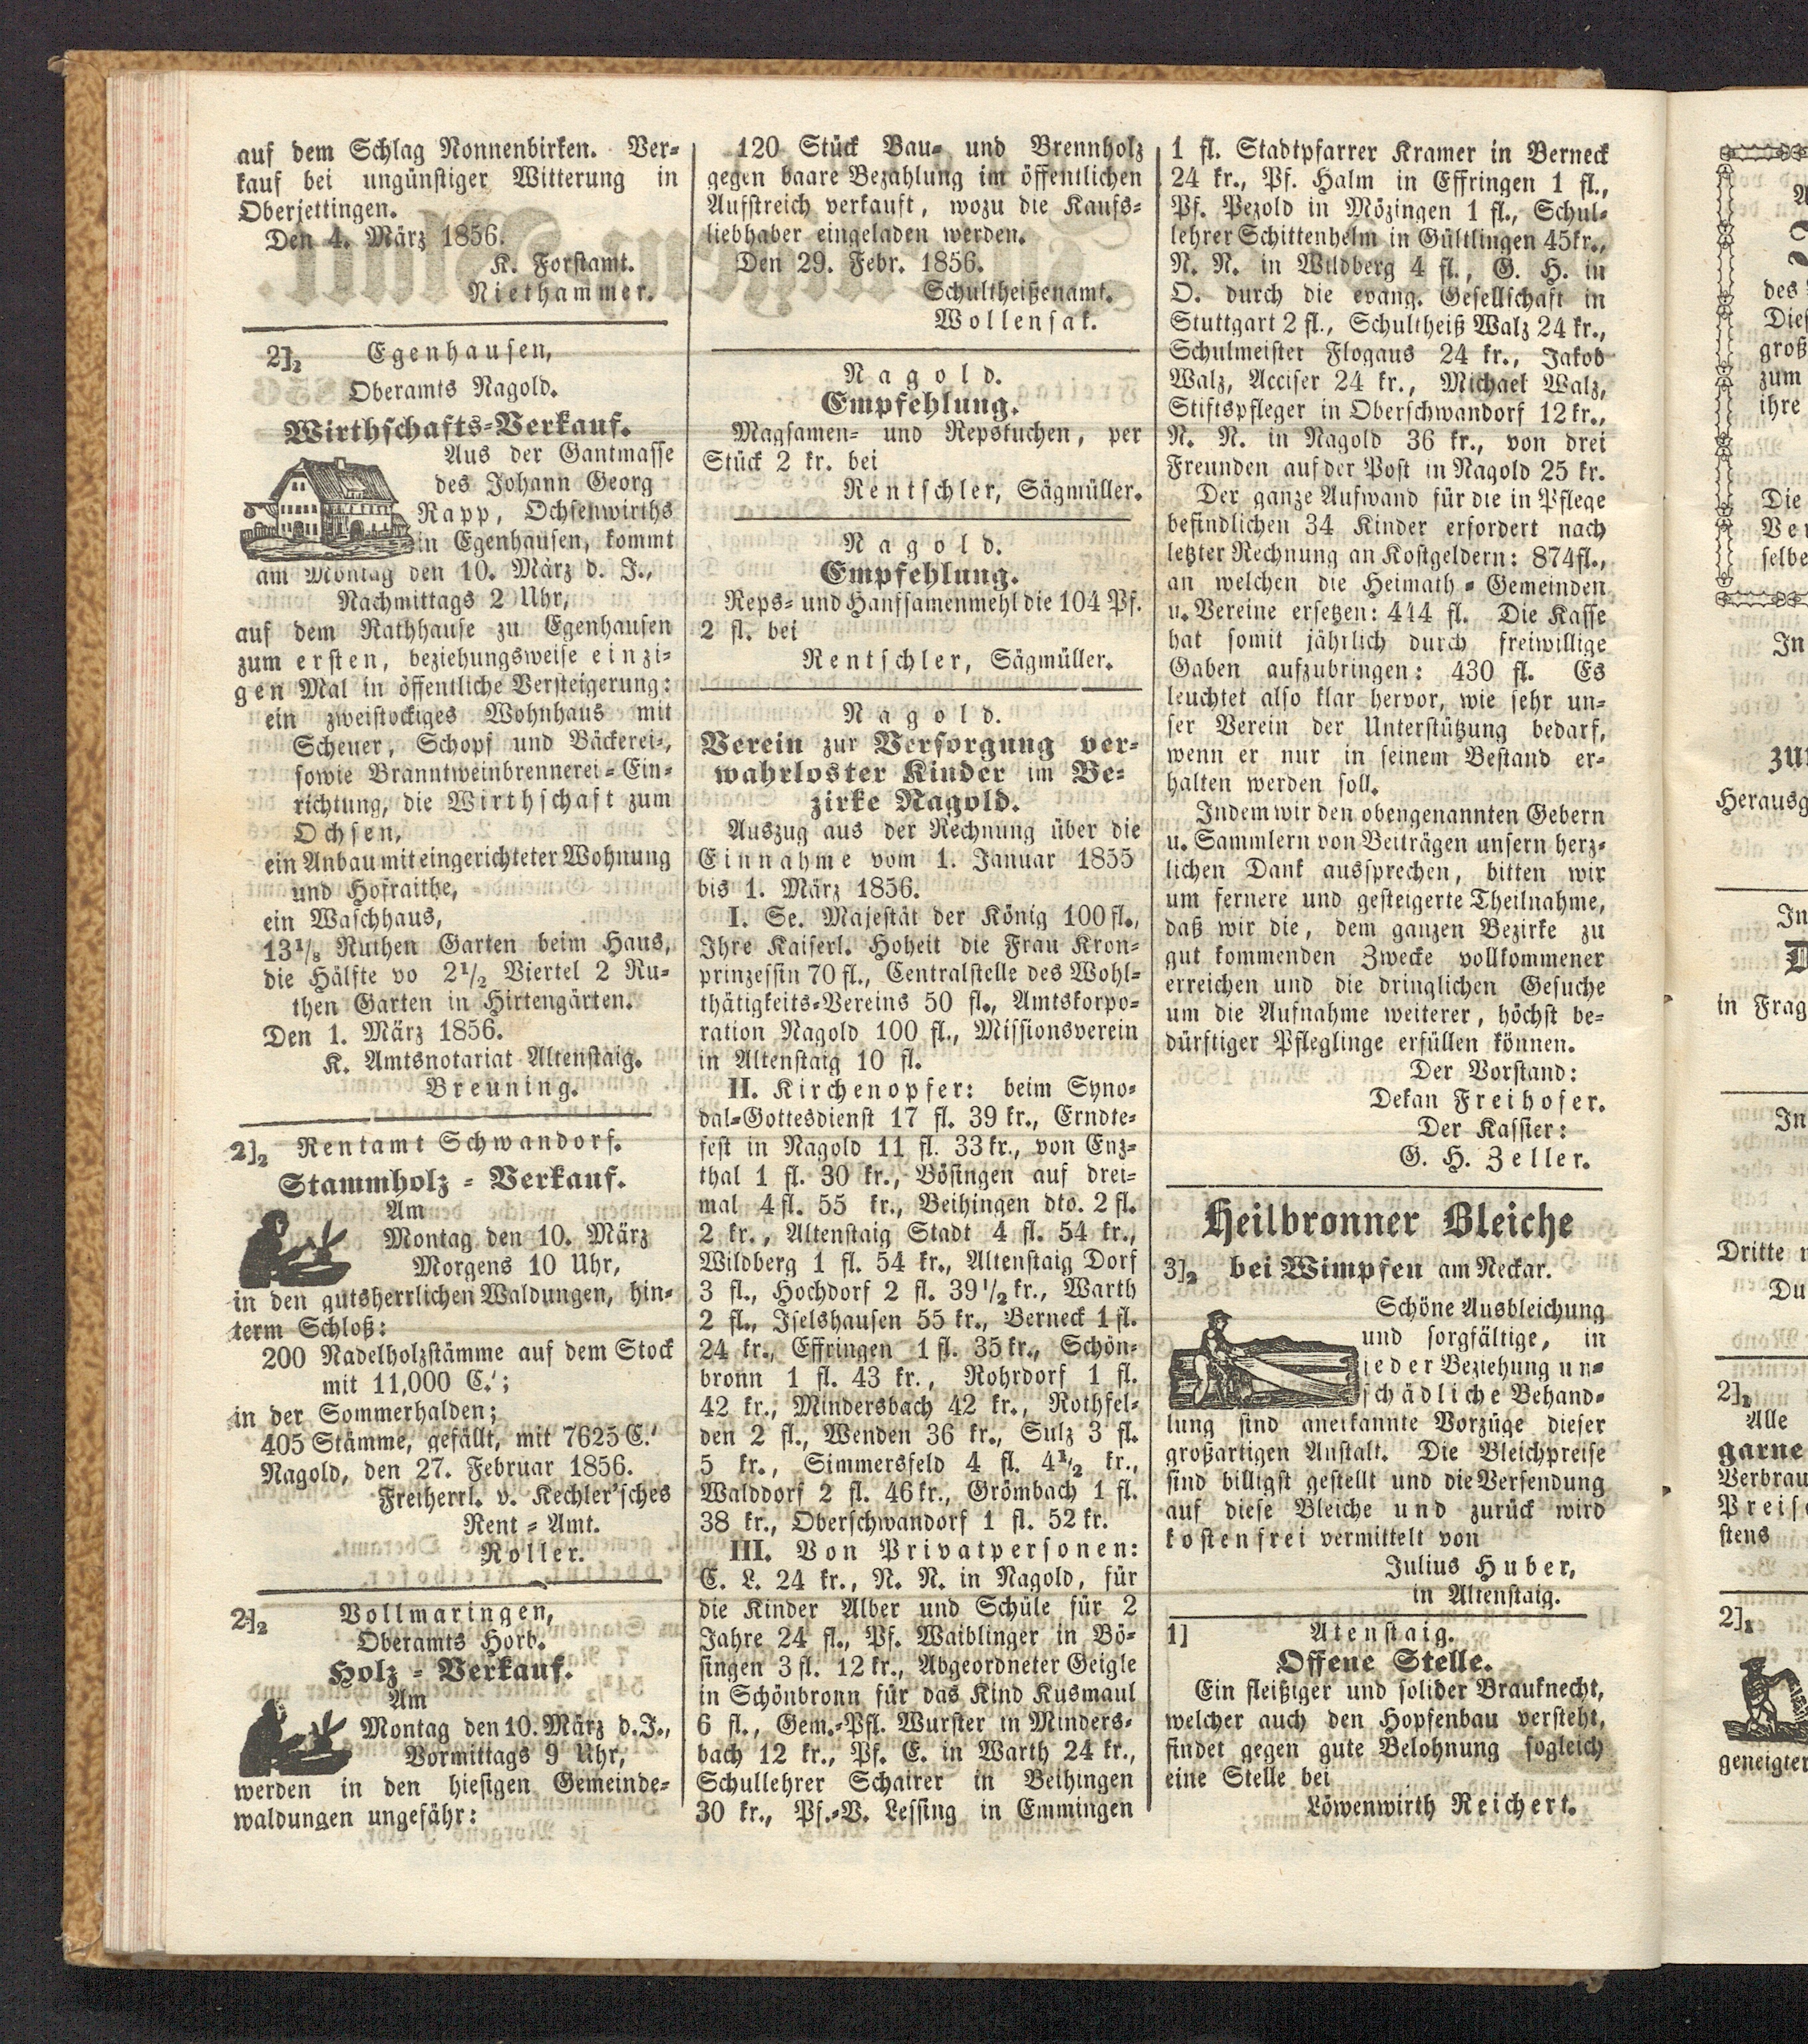 auf dem Schlag Nonnenbirken. Ver-
kauf bei ungünstiger Witterung in
Oberjettingen.
Den 4. März 1856.
K. Forstamt.
Niethammer.
2]₂ Egenhausen,
Oberamts Nagold.
Wirthschafts-Verkauf.
Aus der Gantmasse
des Johann Georg
Rapp, Ochsenwirths
in Egenhausen, kommt
am Montag den 10. März d. J.,
Nachmittags 2 Uhr,
auf dem Rathhause zu Egenhausen
zum ersten, beziehungsweise einzi-
gen Mal in öffentliche Versteigerung:
ein zweistockiges Wohnhaus mit
Scheuer, Schopf und Bäckerei-,
sowie Branntweinbrennerei-Ein-
richtung, die Wirthschaft zum
Ochsen,
ein Anbau mit eingerichteter Wohnung
und Hofraithe,
ein Waschhaus,
13⅛ Ruthen Garten beim Haus,
die Hälfte vo 2½ Viertel 2 Ru-
then Garten in Hirtengärten.
Den 1. März 1856.
K. Amtsnotariat Altenstaig.
Breuning.
2]₂ Rentamt Schwandorf.
Stammholz-Verkauf.
Am
Montag den 10. März
Morgens 10 Uhr,
in den gutsherrlichen Waldungen, hin-
term Schloß:
200 Nadelholzstämme auf dem Stock
mit 11,000 C.';
in der Sommerhalden;
405 Stämme, gefällt, mit 7625 C.'
Nagold, den 27. Februar 1856.
Freiherrl. v. Kechler'sches
Rent-Amt.
Roller.
2]₂ Vollmaringen,
Oberamts Horb.
Holz-Verkauf.
Am
Montag den 10. März d. J.,
Vormittags 9 Uhr,
werden in den hiesigen Gemeinde-
waldungen ungefähr:
120 Stück Bau- und Brennholz
gegen baare Bezahlung im öffentlichen
Aufstreich verkauft, wozu die Kaufs-
liebhaber eingeladen werden.
Den 29. Febr. 1856.
Schultheißenamt.
Wollensak.
Nagold.
Empfehlung.
Magsamen- und Repskuchen, per
Stück 2 kr. bei
Rentschler, Sägmüller.
Nagold.
Empfehlung.
Reps- und Hanfsamenmehl die 104 Pf.
2 fl. bei
Rentschler, Sägmüller.
Nagold.
Verein zur Versorgung ver-
wahrloster Kinder im Be-
zirke Nagold.
Auszug aus der Rechnung über die
Einnahme vom 1. Januar 1855
bis 1. März 1856.
I. Se. Majestät der König 100 fl.,
Ihre Kaiserl. Hoheit die Frau Kron-
prinzessin 70 fl., Centralstelle des Wohl-
thätigkeits-Vereins 50 fl., Amtskorpo-
ration Nagold 100 fl., Missionsverein
in Altenstaig 10 fl.
II. Kirchenopfer: beim Syno-
dal-Gottesdienst 17 fl. 39 kr., Erndte-
fest in Nagold 11 fl. 33 kr., von Enz-
thal 1 fl. 30 kr., Bösingen auf drei-
mal 4 fl. 55 kr., Beihingen dto. 2 fl.
2 kr., Altenstaig Stadt 4 fl. 54 kr.,
Wildberg 1 fl. 54 kr., Altenstaig Dorf
3 fl., Hochdorf 2 fl. 39½ kr., Warth
2 fl., Iselshausen 55 kr., Berneck 1 fl.
24 kr., Effringen 1 fl. 35 kr., Schön-
bronn 1 fl. 43 kr., Rohrdorf 1 fl.
42 kr., Mindersbach 42 kr., Rothfel-
den 2 fl., Wenden 36 kr., Sulz 3 fl.
5 kr., Simmersfeld 4 fl. 4½ kr.,
Walddorf 2 fl. 46 kr., Grömbach 1 fl.
38 kr., Oberschwandorf 1 fl. 52 kr.
III. Von Privatpersonen:
C. L. 24 kr., N. N. in Nagold, für
die Kinder Alber und Schüle für 2
Jahre 24 fl., Pf. Waiblinger in Bö-
singen 3 fl. 12 kr., Abgeordneter Geigle
in Schönbronn für das Kind Kusmaul
6 fl., Gem.-Pfl. Wurster in Minders-
bach 12 kr., Pf. E. in Warth 24 kr.,
Schullehrer Schairer in Beihingen
30 kr., Pf.-V. Lessing in Emmingen
1 fl. Stadtpfarrer Kramer in Berneck
24 kr., Pf. Halm in Effringen 1 fl.,
Pf. Pezold in Mözingen 1 fl., Schul-
lehrer Schittenhelm in Gültlingen 45 kr.,
N. N. in Wildberg 4 fl., G. H. in
O. durch die evang. Gesellschaft in
Stuttgart 2 fl., Schultheiß Walz 24 kr.,
Schulmeister Flogaus 24 kr., Jakob
Walz, Acciser 24 kr., Michael Walz,
Stiftspfleger in Oberschwandorf 12 kr.,
N. N. in Nagold 36 kr., von drei
Freunden auf der Post in Nagold 25 kr.
Der ganze Aufwand für die in Pflege
befindlichen 34 Kinder erfordert nach
letzter Rechnung an Kostgeldern: 874 fl.,
an welchen die Heimath-Gemeinden
u. Vereine ersetzen: 444 fl. Die Kasse
hat somit jährlich durch freiwillige
Gaben aufzubringen: 430 fl. Es
leuchtet also klar hervor, wie sehr un-
ser Verein der Unterstützung bedarf,
wenn er nur in seinem Bestand er-
halten werden soll.
Indem wir den obengenannten Gebern
u. Sammlern von Beiträgen unsern herz-
lichen Dank aussprechen, bitten wir
um fernere und gesteigerte Theilnahme,
daß wir die, dem ganzen Bezirke zu
gut kommenden Zwecke vollkommener
erreichen und die dringlichen Gesuche
um die Aufnahme weiterer, höchst be-
dürftiger Pfleglinge erfüllen können.
Der Vorstand:
Dekan Freihofer.
Der Kassier:
G. H. Zeller.
Heilbronner Bleiche
3]₂ bei Wimpfen am Neckar.
Schöne Ausbleichung
und sorgfältige, in
jeder Beziehung un-
schädliche Behand-
lung sind anerkannte Vorzüge dieser
großartigen Anstalt. Die Bleichpreise
sind billigst gestellt und die Versendung
auf diese Bleiche und zurück wird
kostenfrei vermittelt von
Julius Huber,
in Altenstaig.
1] Atenstaig.
Offene Stelle.
Ein fleißiger und solider Brauknecht,
welcher auch den Hopfenbau versteht,
findet gegen gute Belohnung sogleich
eine Stelle bei
Löwenwirth Reichert.
des
Die
groß
zum
ihre
Die
Ver
selbe
In
zu
Herausg
In
D
in Frag
In
Dritte
Du
2]₂
Alle
garne
Verbrau
Preise
stens
2]₂
geneigter